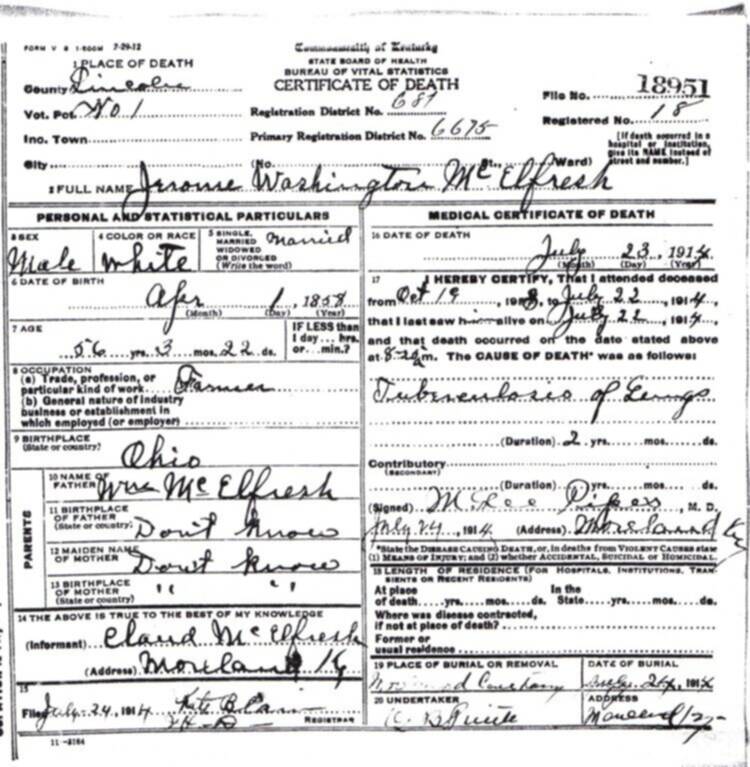 FORM V S 1-500M 7-29-12
Commonwealth of Kentucky
STATE BOARD OF HEALTH
BUREAU OF VITAL STATISTICS
CERTIFICATE OF DEATH
1 PLACE OF DEATH
County Lincoln
Vot. Pct. No 1
Inc. Town
City
Registration District No. 687
Primary Registration District No. 6675
(No. St., Ward)
File No. 18951
Registered No. 18
[If death occurred in a hospital or institution, give its NAME instead of street and number.]
2 FULL NAME Jerome Washington McElfresh
PERSONAL AND STATISTICAL PARTICULARS
3 SEX
Male
4 COLOR OR RACE
White
5 SINGLE, MARRIED WIDOWED OR DIVORCED (Write the word)
Married
6 DATE OF BIRTH
Apr 1, 1858
(Month) (Day) (Year)
7 AGE
56 yrs. 3 mos. 22 ds.
IF LESS than 1 day... hrs. or... min.?
8 OCCUPATION
(a) Trade, profession, or particular kind of work Farmer
(b) General nature of industry business or establishment in which employed (or employer)
9 BIRTHPLACE
(State or country)
Ohio
PARENTS
10 NAME OF FATHER Wm McElfresh
11 BIRTHPLACE OF FATHER (State or country) Don't know
12 MAIDEN NAME OF MOTHER Don't know
13 BIRTHPLACE OF MOTHER (State or country) " "
14 THE ABOVE IS TRUE TO THE BEST OF MY KNOWLEDGE
(Informant) Claud McElfresh
(Address) Moreland Ky
15
Filed July 24, 1914
REGISTRAR
11-3184
MEDICAL CERTIFICATE OF DEATH
16 DATE OF DEATH
July 23, 1914
(Month) (Day) (Year)
17 I HEREBY CERTIFY, That I attended deceased
from Oct 19, to July 22, 1914,
that I last saw him alive on July 22, 1914,
and that death occurred on the date stated above
at 8-20 a m. The CAUSE OF DEATH* was as follows:
Tuberculosis of Lungs
(Duration) 2 yrs. mos. ds.
Contributory
(SECONDARY)
(Duration) yrs. mos. ds.
(Signed) M. D.
July 24, 1914 (Address) Moreland Ky
*State the DISEASE CAUSING DEATH, or, in deaths from VIOLENT CAUSES state
(1) MEANS OF INJURY; and (2) whether ACCIDENTAL, SUICIDAL OR HOMICIDAL.
18 LENGTH OF RESIDENCE (FOR HOSPITALS, INSTITUTIONS, TRANSIENTS OR RECENT RESIDENTS)
At place of death yrs. mos. ds. In the State yrs. mos. ds.
Where was disease contracted, if not at place of death?
Former or usual residence
19 PLACE OF BURIAL OR REMOVAL
DATE OF BURIAL
July 24, 1914
20 UNDERTAKER
ADDRESS
Moreland Ky